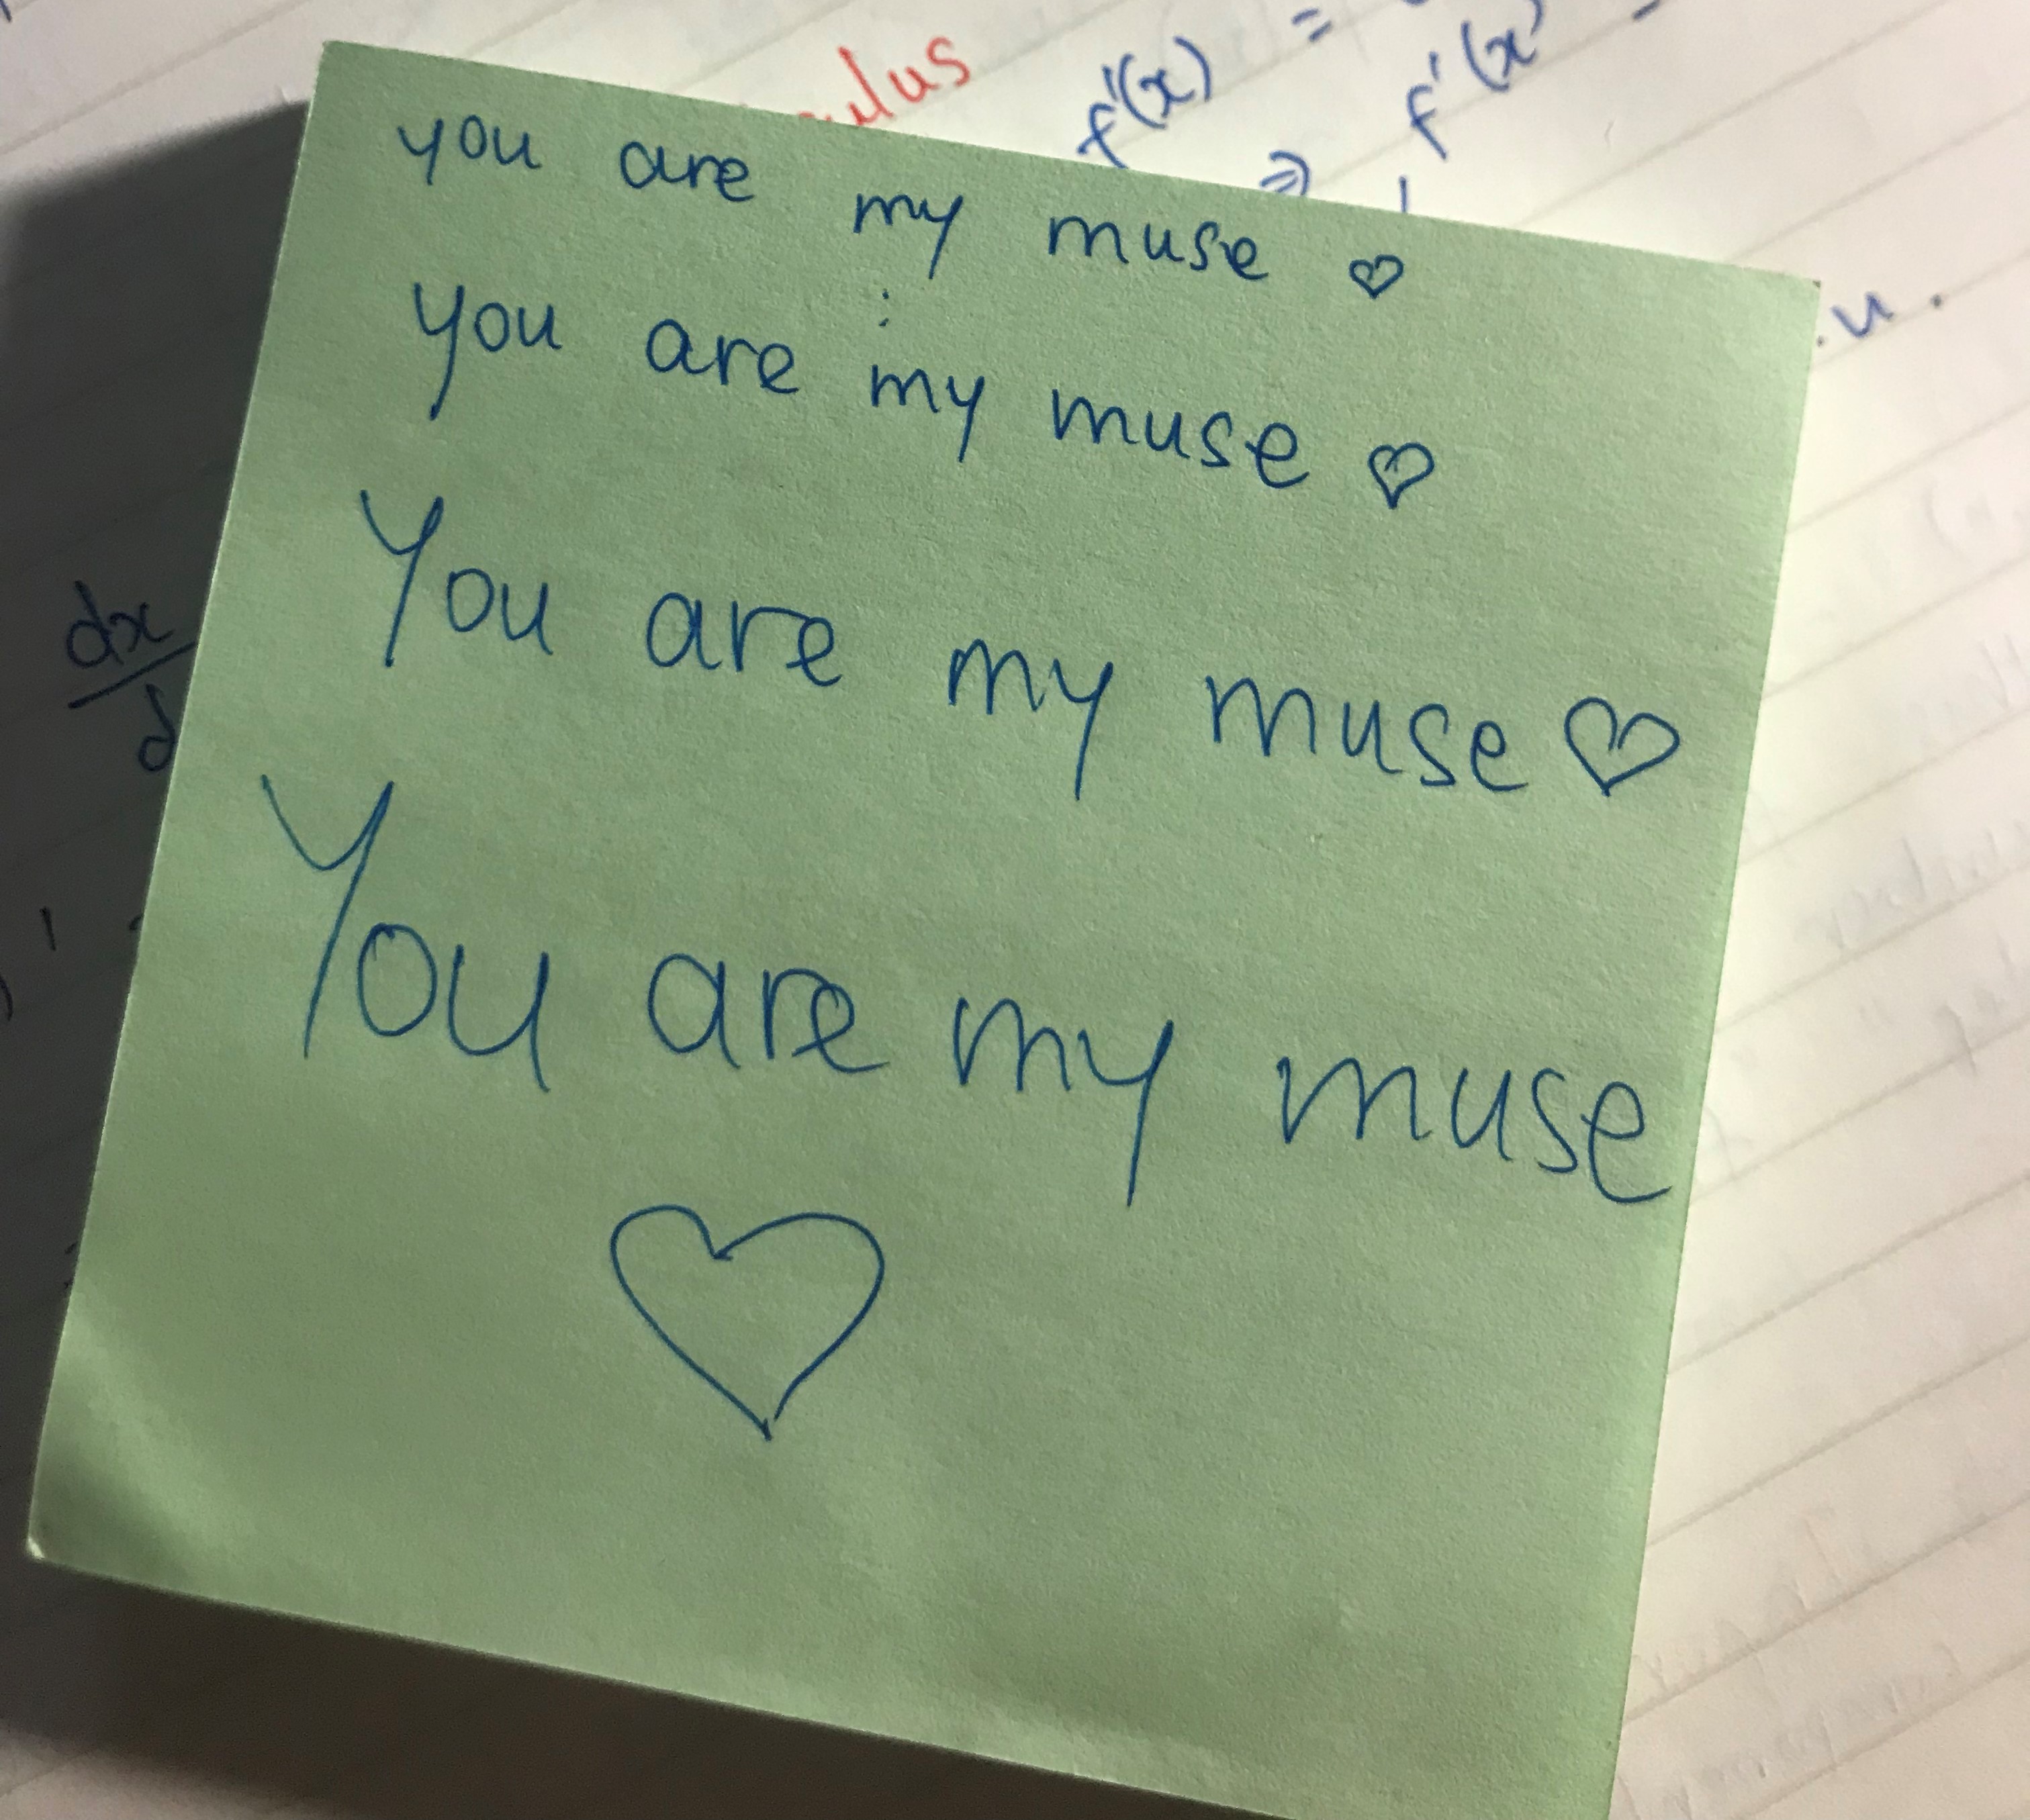 ulus
f'(x) =
⇒ f'(x)
you are my muse ♡
you are my muse ♡
You are my muse ♡
You are my muse
♡
u.
dx
d